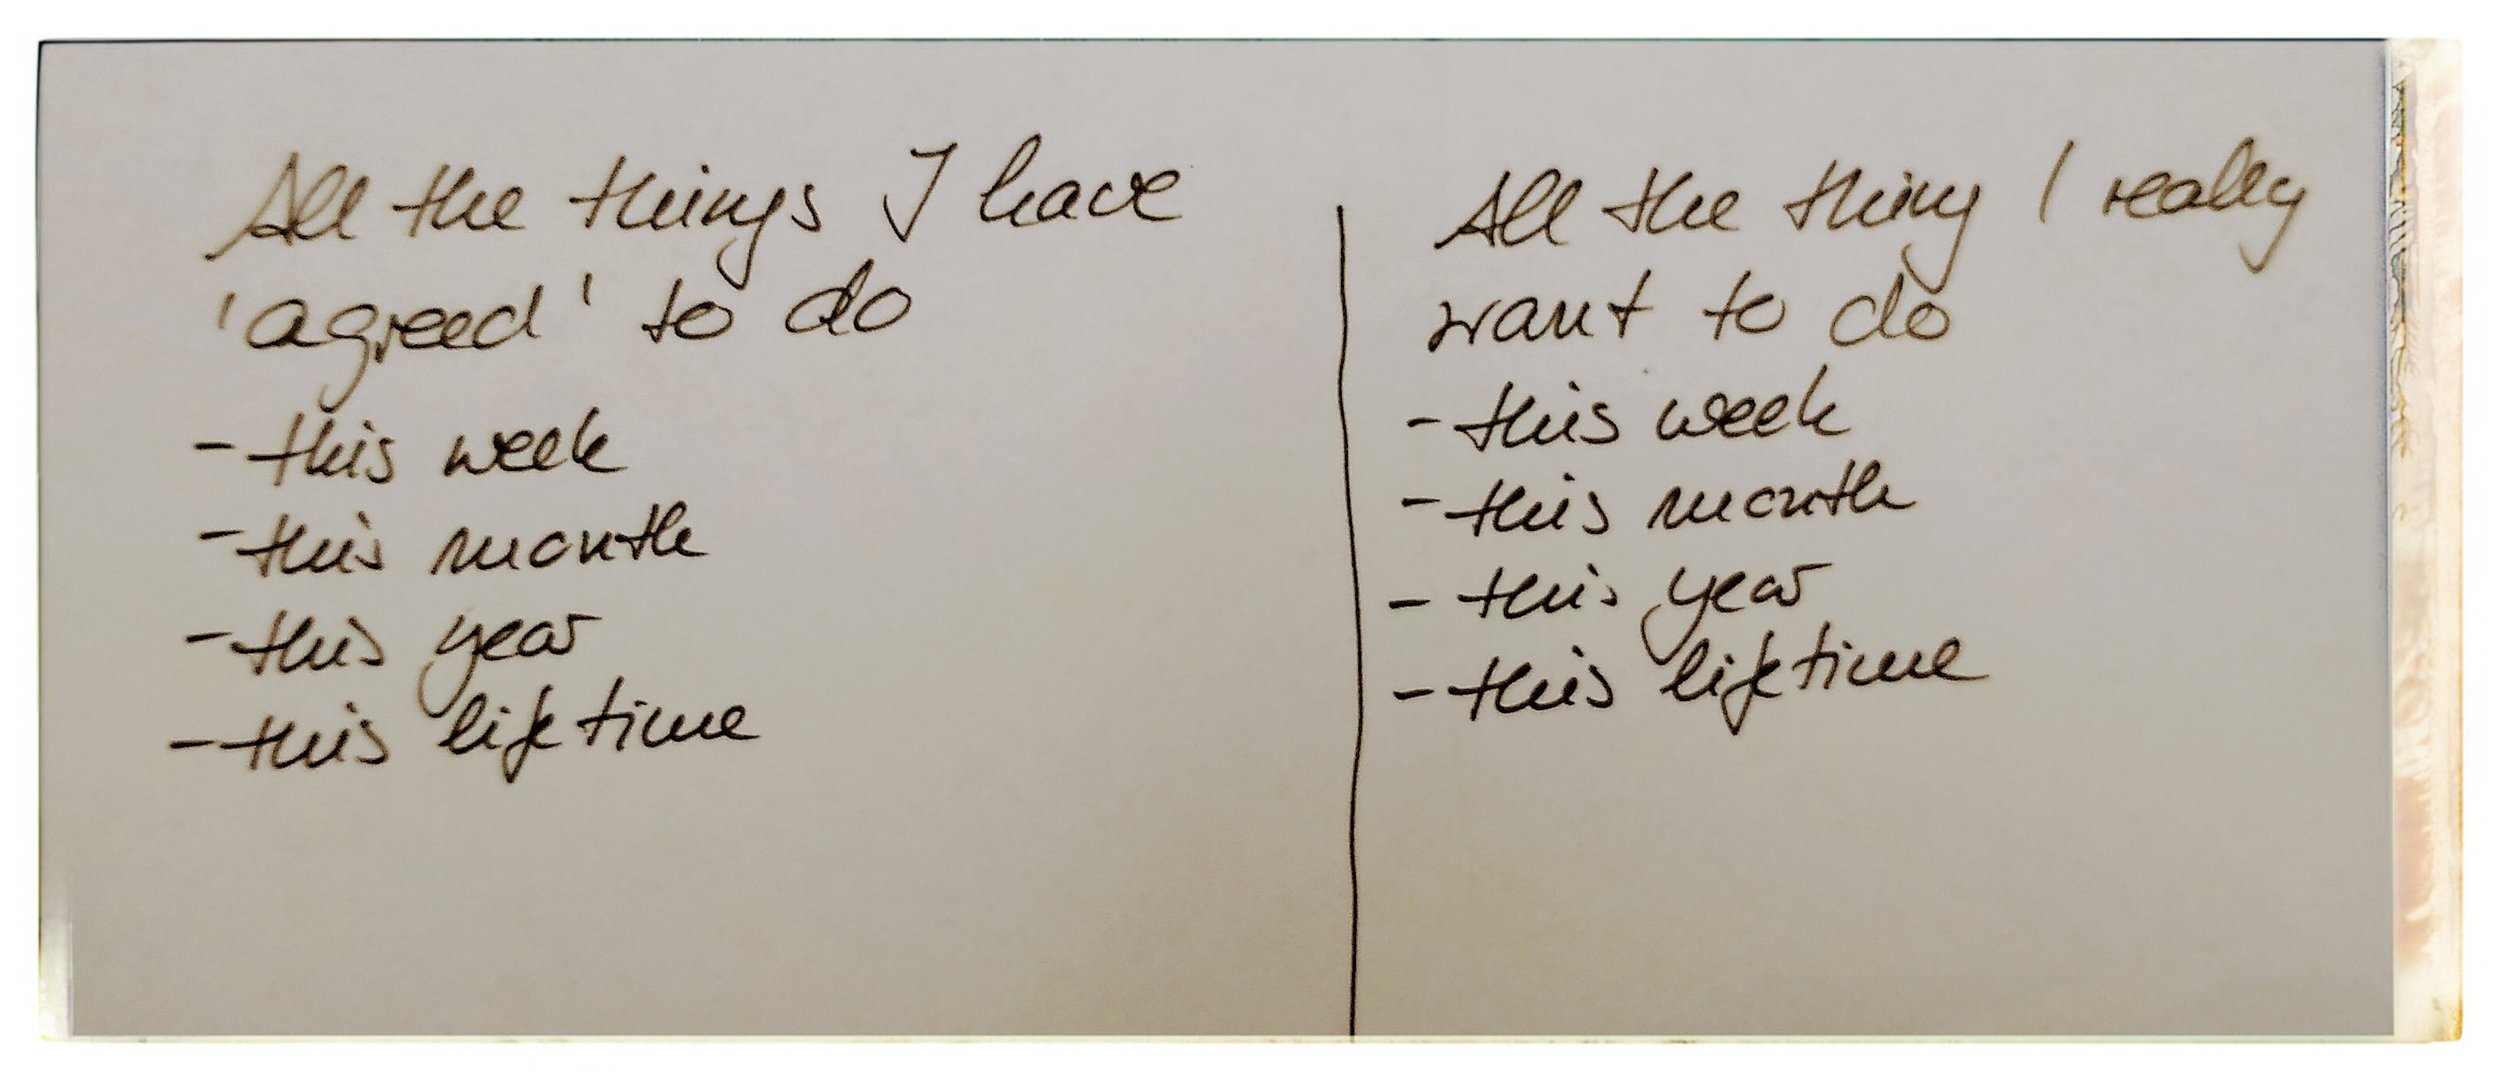 All the things I have
'agreed' to do
- this week
- this month
- this year
- this lifetime
All the thing I really
want to do
- this week
- this month
- this year
- this lifetime